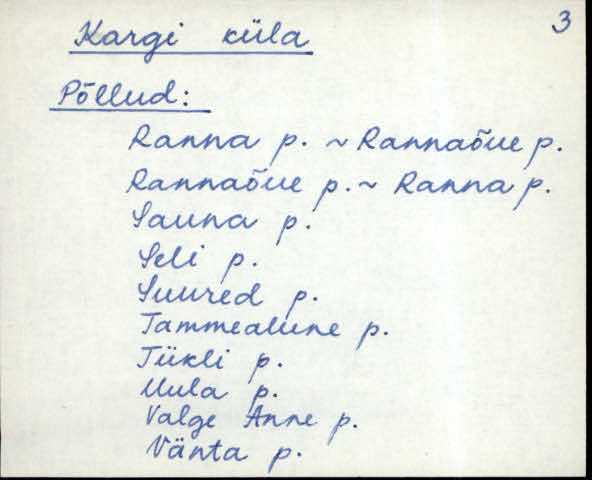 3
Kargi küla
Põllud:
Ranna p. ~ Rannaõue p.
Rannaõue p. ~ Ranna p.
Sauna p.
Seli p.
Suured p.
Tammealune p.
Tükli p.
Uula p.
Valge Anne p.
Vänta p.